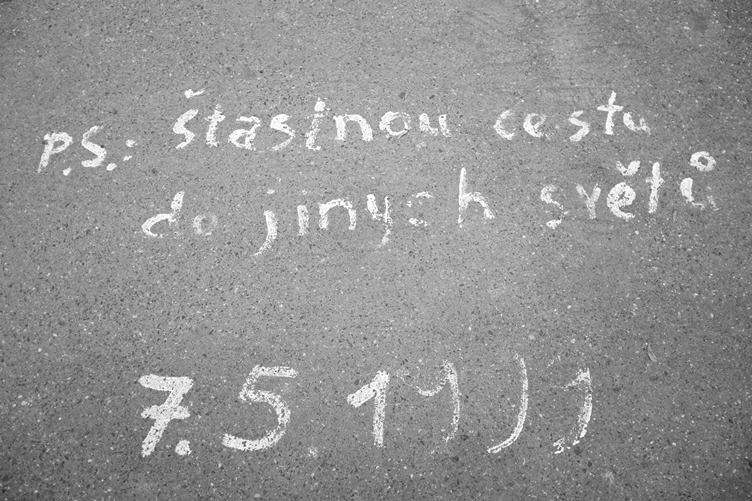 p.s.: šťastnou cestu
do jiných světů
7.5.1999